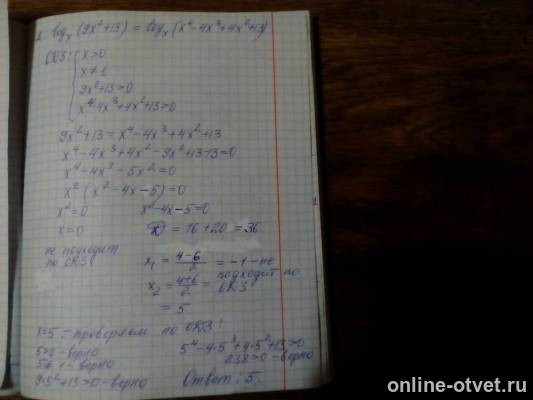 1. log_x (9x²+13) = log_x (x⁴-4x³+4x²+13)
ОДЗ: { x>0
x≠1
9x²+13>0
x⁴-4x³+4x²+13>0
9x²+13=x⁴-4x³+4x²+13
x⁴-4x³+4x²-9x²+13-13=0
x⁴-4x³-5x²=0
x²(x²-4x-5)=0
x²=0 x²-4x-5=0
x=0 D = 16+20=36
не подходит по ОДЗ
x₁ = (4-6)/2 = -1 - не подходит по ОДЗ
x₂ = (4+6)/2 =
= 5
x=5: - проверяем по ОДЗ:
5>0 - верно
5≠1 - верно
9·5²+13>0 - верно
5⁴-4·5³+4·5²+13>0
238>0 - верно
Ответ: 5.
online-otvet.ru